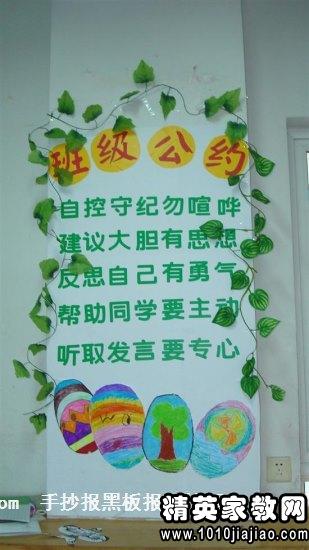 班级公约
自控守纪勿喧哗
建议大胆有思想
反思自己有勇气
帮助同学要主动
听取发言要专心
om 手抄报黑板报
精英家教网
www.1010jiajiao.com